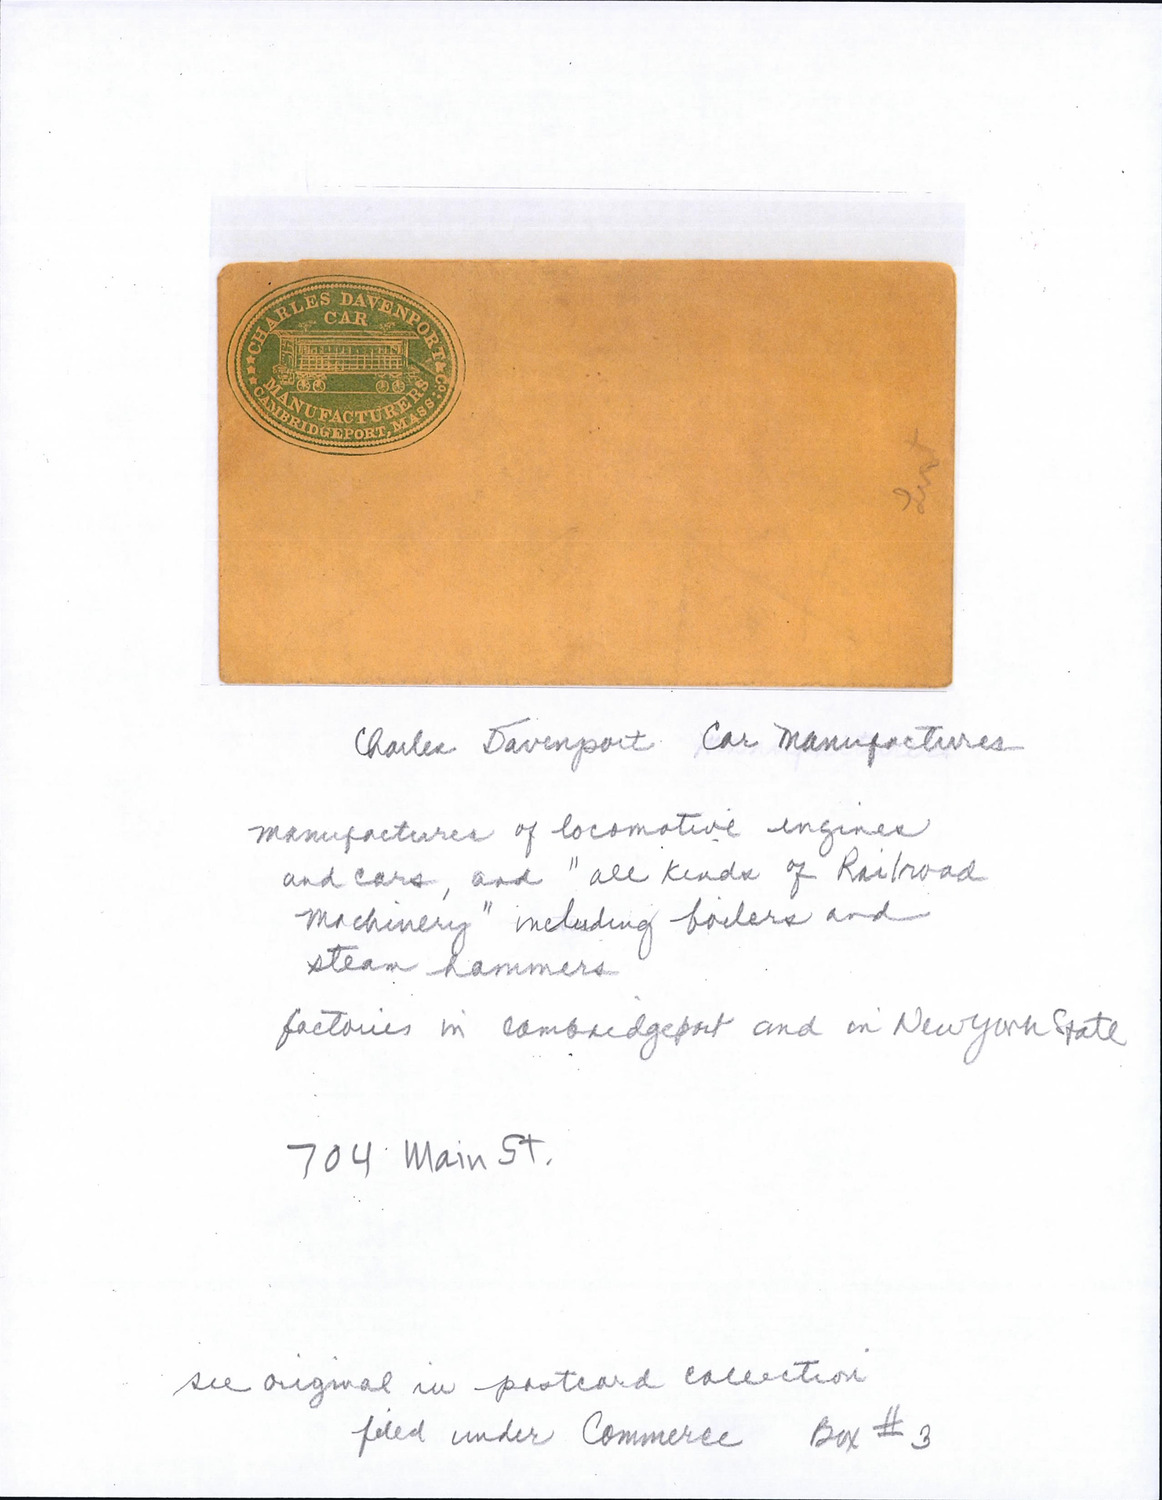 CHARLES DAVENPORT & CO:
CAR
MANUFACTURERS
CAMBRIDGEPORT, MASS.
Charles Davenport Car Manufactures
manufactures of locomotive engines
and cars, and "all kinds of Railroad
Machinery" including boilers and
steam hammers
factories in Cambridgeport and in New York State
704 Main St.
see original in postcard collection
filed under Commerce Box # 3